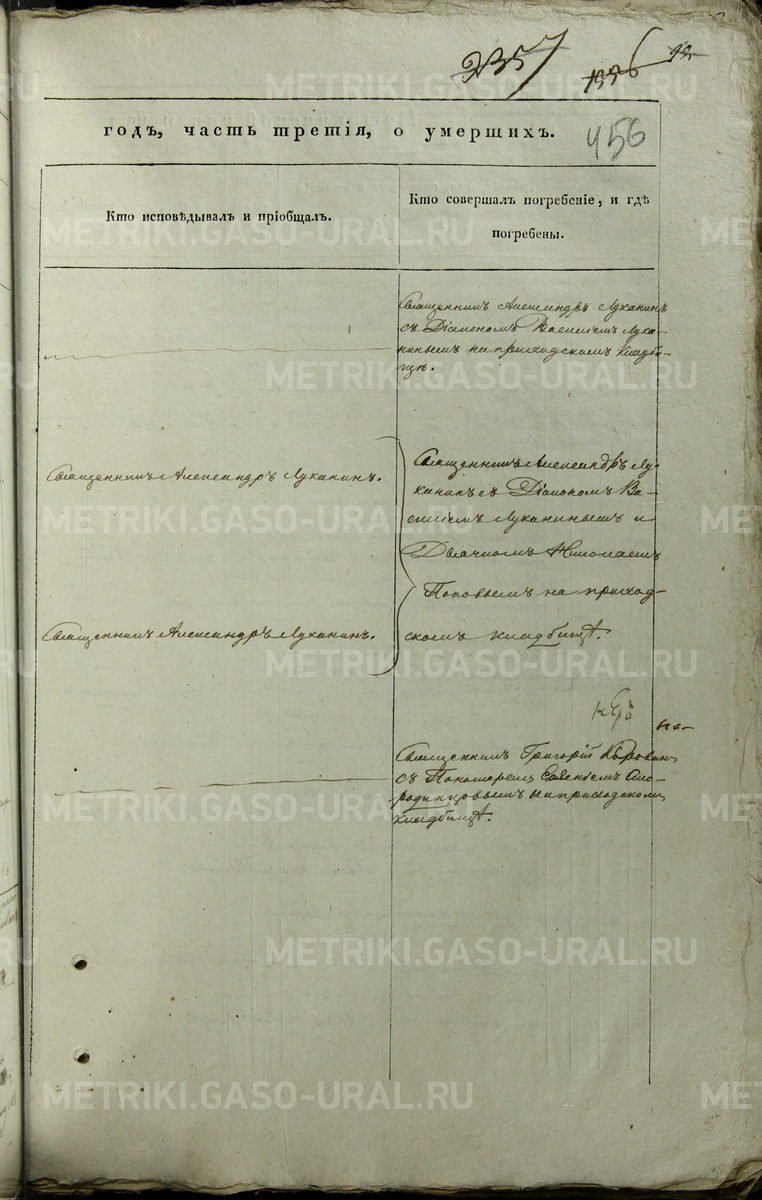 2357
1556
92
456
годъ, часть третія, о умершихъ.
Кто исповѣдывалъ и пріобщалъ.
Кто совершалъ погребеніе, и гдѣ
погребены.
Священникъ Александръ Луканинъ
съ Діакономъ Василіемъ Лука-
нинымъ на приходскомъ кладби-
щѣ.
Священникъ Александръ Луканинъ.
Священникъ Александръ Лу-
канинъ съ Діакономъ Ва-
силіемъ Луканинымъ и
Дьячкомъ Николаемъ
Поповымъ на приход-
скомъ кладбищѣ.
Священникъ Александръ Луканинъ.
на-
Священникъ Григорій Коровин
съ Пономаремъ Евгеніемъ Смо-
родинцовымъ на приходскомъ
кладбищѣ.
METRIKI.GASO-URAL.RU